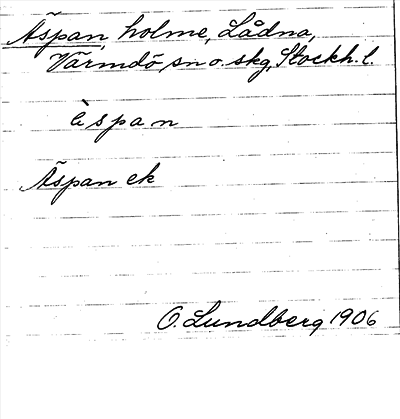 Äspan, holme, Lådna,
Värmdö sn o. skg, Stockh. l.
èspan
Äspan ek
O. Lundberg 1906